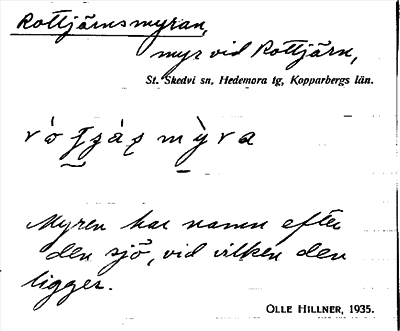 Rottjärnsmyran,
myr vid Rottjärn,
St. Skedvi sn, Hedemora tg, Kopparbergs län.
myra
Myren har namn efter
den sjö, vid vilken den
ligger.
OLLE HILLNER, 1935.